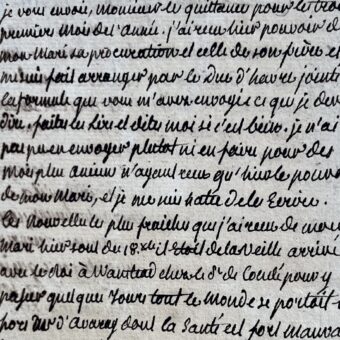 je vous envoie, monsieur la quittance pour le trois
premiers mois de l'année. j'ai reçu hier pouvoir de
mon Mari sa procuration et celle de son frère et
fait arranger par le Duc d'havre jointe
la formule que vous m'avez envoyée ce que je dois
dire, faites les lire et dites moi si c'est bien. je n'ai
pas pu en envoyer plutot ni en faire pour des
mois plus ancien n'ayant reçu qu'hier le pouvoir
de mon Mari, et je me suis hatée de le
Les nouvelles le plus fraiche que j'ai reçu de mon
Mari hier sont du 18. il etoit de la veille arrivé
avec le Roi à Wanstead chez le Pce de Condé pour y
passer quelque Jours tout le Monde se portait
hors Mr d'avaray dont la Santé est fort mauva